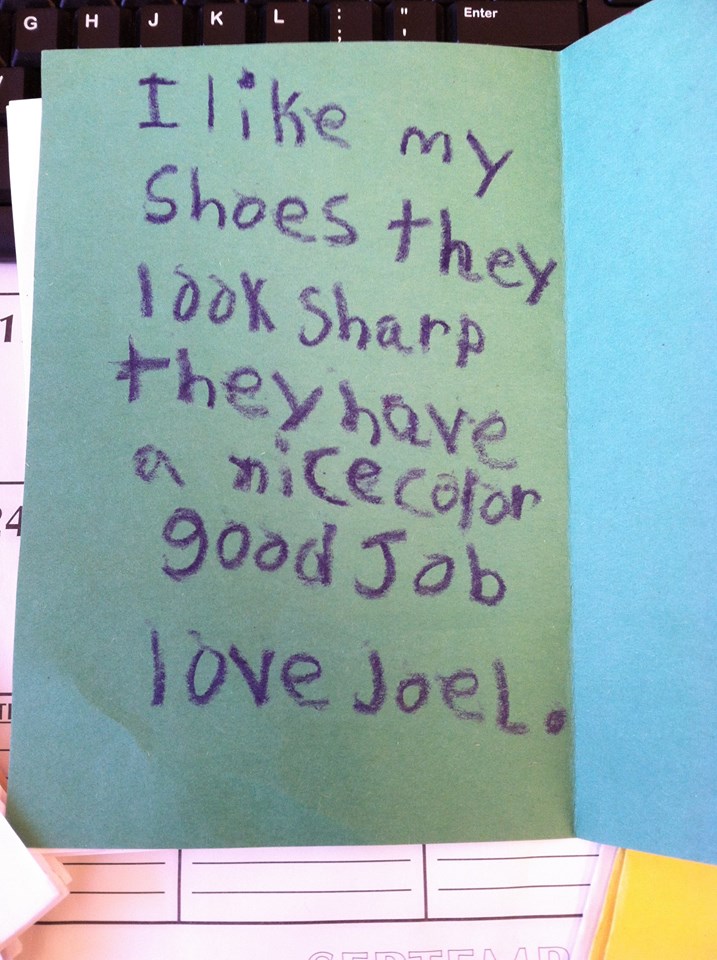 G H J K L : ; " ' Enter
I like my
Shoes they
look Sharp
they have
a nice color
good Job
love JoeL.
1
24
SEPTEMB